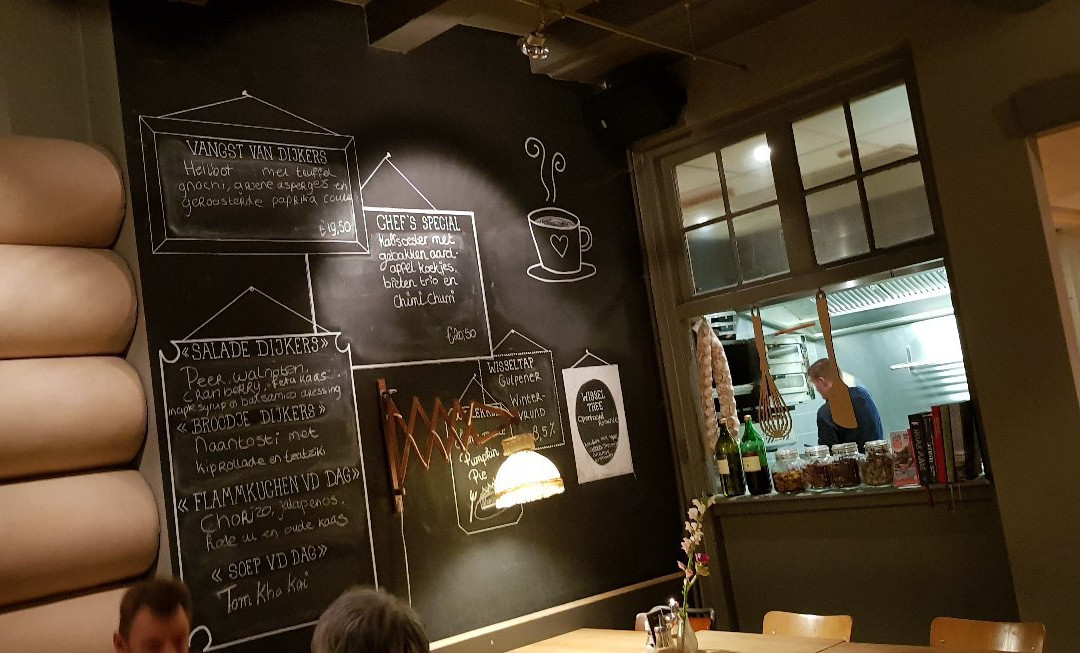 VANGST VAN DIJKERS
Heilbot met truffel
gnochi, groene asperges en
geroosterde paprika coulis
€19,50
CHEF'S SPECIAL
Kalfsoester met
gebakken aard-
appel koekjes,
bieten trio en
Chimi churri
€20,50
«SALADE DIJKERS»
Peer, walnoten,
Cranberry, feta kaas
maple syrup of balsamico dressing
«BROODJE DIJKERS»
Naantosti met
kiprollade en tzatziki
«FLAMMKUCHEN VD DAG»
Chorizo, jalapenos,
Rode ui en oude kaas
«SOEP VD DAG»
Tom Kha Kai
WISSELTAP
Gulpener
Winter-
vrund
8,5%
Pumpkin
Pie
WISSEL
THEE